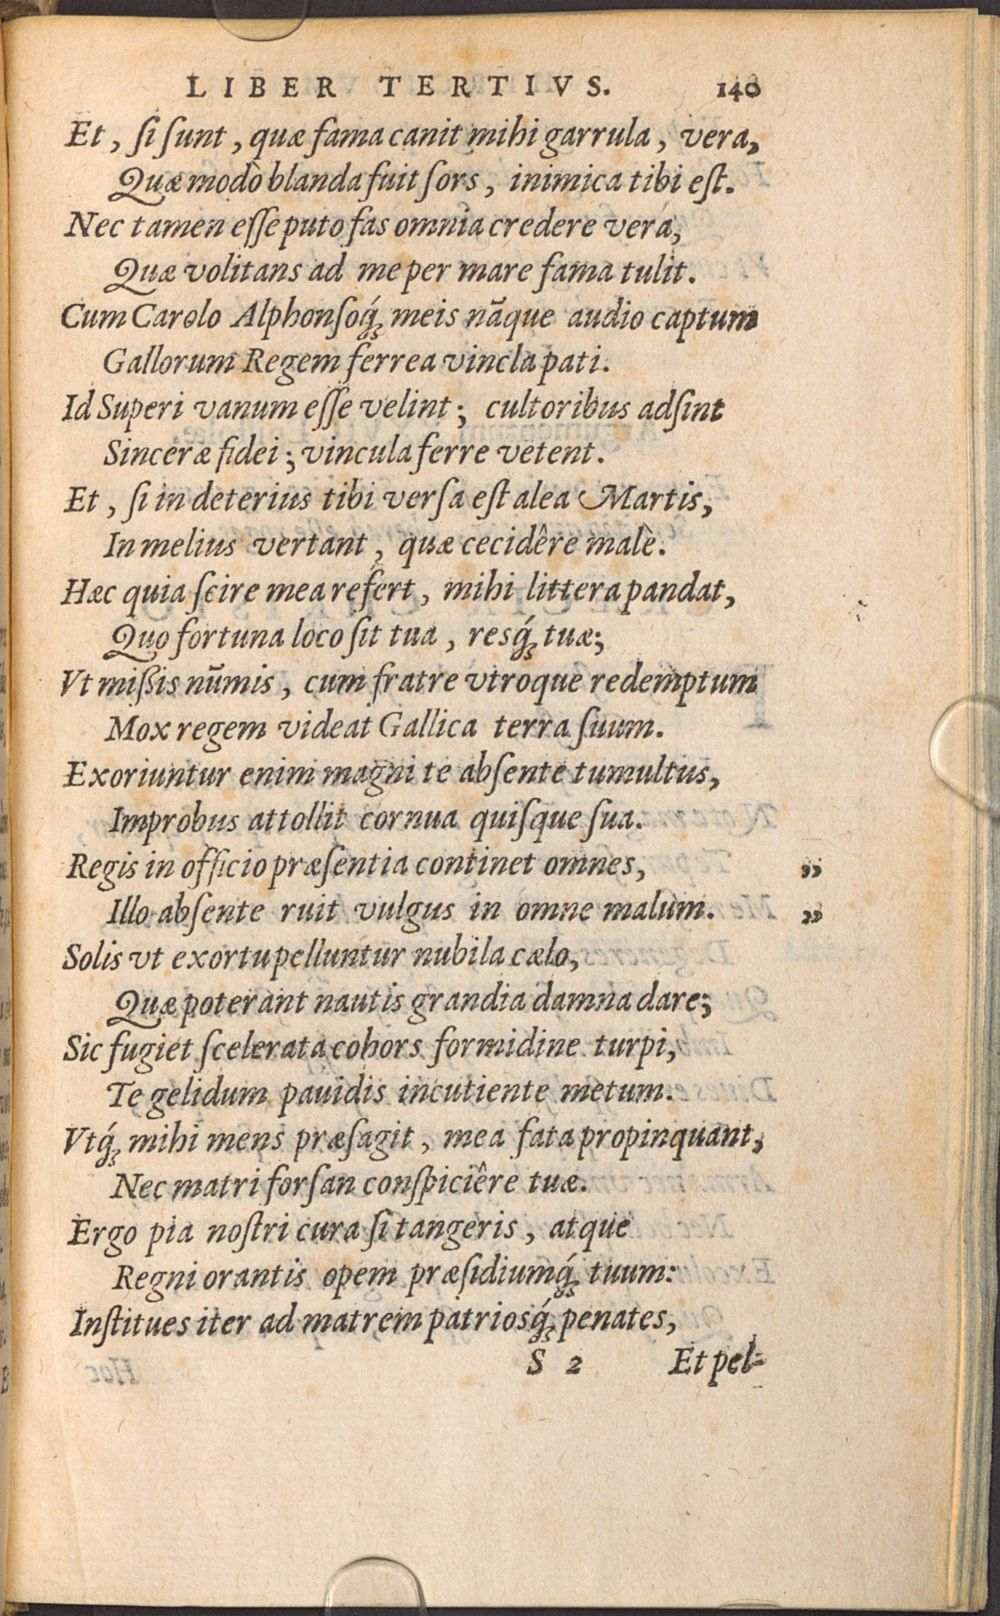 LIBER TERTIVS. 140
Et, ſi ſunt, quæ fama canit mihi garrula, vera,
Quæ modò blanda fuit ſors, inimica tibi eſt.
Nec tamen eſſe puto fas omnia credere vera,
Quæ volitans ad me per mare fama tulit.
Cum Carolo Alphonſoq́ꝫ meis nāque audio captum
Gallorum Regem ferrea vincla pati.
Id Superi vanum eſſe velint; cultoribus adſint
Sinceræ fidei; vincula ferre vetent.
Et, ſi in deterius tibi verſa eſt alea Martis,
In melius vertant, quæ cecidêre malè.
Hæc quia ſcire mea refert, mihi littera pandat,
Quo fortuna loco ſit tua, resq́ꝫ tuæ;
Vt miſsis nūmis, cum fratre vtroque redemptum
Mox regem videat Gallica terra ſuum.
Exoriuntur enim magni te abſente tumultus,
Improbus attollit cornua quiſque ſua.
Regis in officio præſentia continet omnes, ”
Illo abſente ruit vulgus in omne malum. ”
Solis vt exortu pelluntur nubila cælo,
Quæ poterant nautis grandia damna dare;
Sic fugiet ſcelerata cohors formidine turpi,
Te gelidum pauidis incutiente metum.
Vtq́ꝫ mihi mens præſagit, mea fata propinquant,
Nec matri forſan conſpiciêre tuæ.
Ergo pia noſtri cura ſi tangeris, atque
Regni orantis opem præſidiumq́ꝫ tuum:
Inſtitues iter ad matrem patriosq́ꝫ penates,
S 2 Et pel-